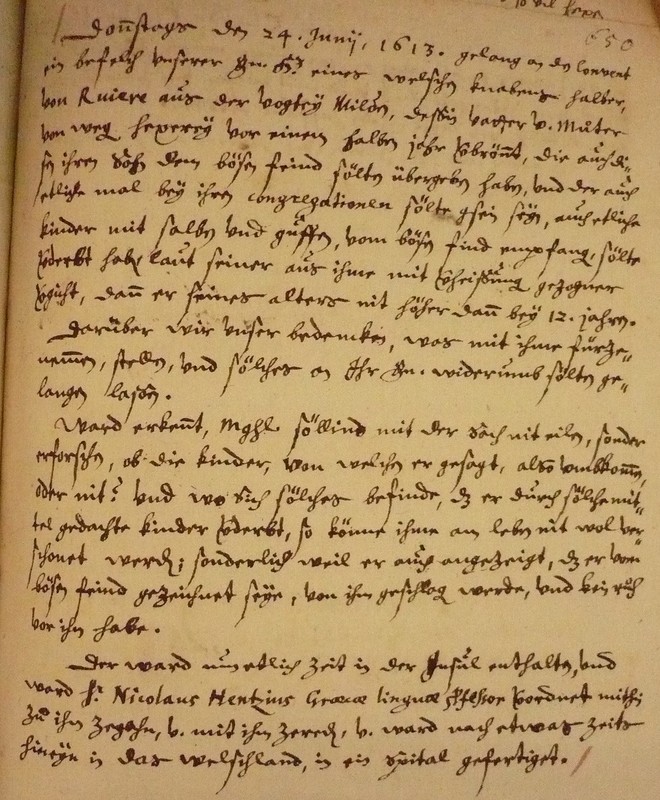 so vil hexen
650
Donstags den 24. Junij, 1613. gelang an dz Convent
ein befelch unserer Gn. H. eines welschen knabens halber,
von Ruiere aus der vogtey Milden, dessin vatter v. Muter
von weg hexerey vor einem halben jahr vbrönnt, die auch di-
sen ihren Sohn dem bösen feind sölten übergeben haben, und der auch
etliche mal bey ihren congregationen sölte gsein seyn, auch etliche
kinder mit salben und güssen, vom bösen find empfang, sölte
vderbt habe laut seiner aus ihme mit vheissung gezogner
vgicht, dann er seines alters nit höher dann bey 12. jahren.
Darüber wir unser bedencken, was mit ihme fürze-
nemmen, stellen, und sölches an Ihr Gn. widerumb sölten ge-
langen lassen.
Ward erkennt, Mghh. söllind mit der Sach nit eilen, sonder
erforschen, ob die kinder, von welchen er gesagt, also umbkommen,
oder nit? Und wo sich sölches befinde, dz er durch sölche mit-
tel gedachte kinder vderbt, so könne ihme am leben nit wol ver-
schonet werden; sonderlich weil er auch angezeigt, dz er vom
bösen feind gezeichnet seye, von ihm geschlag werde, und kein ruh
vor ihm habe.
Der ward nun etlich zeit in der Insul enthalten, und
ward Hr. Nicolaus Hentzius Graecae linguae Professor vordnet mithin
zu ihm zegahn, v. mit ihm zereden, v. ward nach etwas zeits
hineyn in das welschland, in ein spital gefertiget.